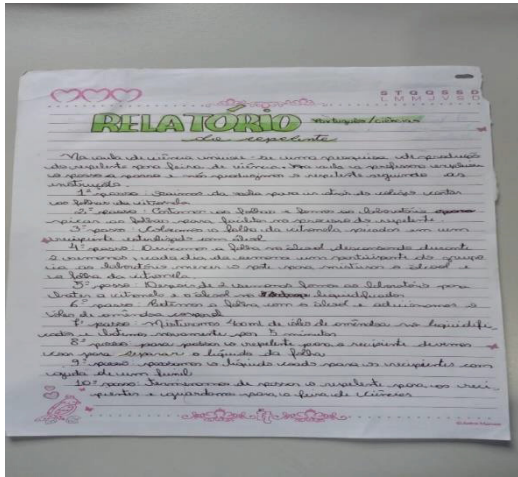 S T Q Q S S D
L M M J V S D
RELATÓRIO Português/Ciências
do repelente
Na aula de ciência uma pesquisa de produção
do repelente para feira de ciência. Na aula a professora explicou
o passo a passo e nós produzimos o repelente seguindo as
instruções.
1º passo: Saímos da sala para ir atrás do colégio cortar
as folhas da citronela
2º passo: Cortamos as folhas e fomos ao laboratório
picar as folhas para facilitar no processo do repelente.
3º passo: Colocamos a folha da citronela picados em um
recipiente esterilizado com álcool
4º passo: Deixamos a folha no álcool descansando durante
2 semanas, cada dia da semana um participante do grupo
ia ao laboratório mexer o pote para misturar o álcool e
a folha da citronela
5º passo: Depois de 2 semanas fomos ao laboratório para
bater a citronela e o álcool no liquidificador
6º passo: Retiramos a folha com o álcool e adicionamos o
óleo de amêndoa corporal
7º passo: Misturamos 400ml de óleo de amêndoa no liquidifi
cador e batemos novamente por 5 minutos
8º passo: para passar o repelente para o recipiente devemos
coar para separar o líquido da folha
9º passo: passamos o líquido coado para os recipientes com
ajuda de um funil
10º passo: Terminamos de passar o repelente para os reci
pientes e aguardamos para a feira de ciências